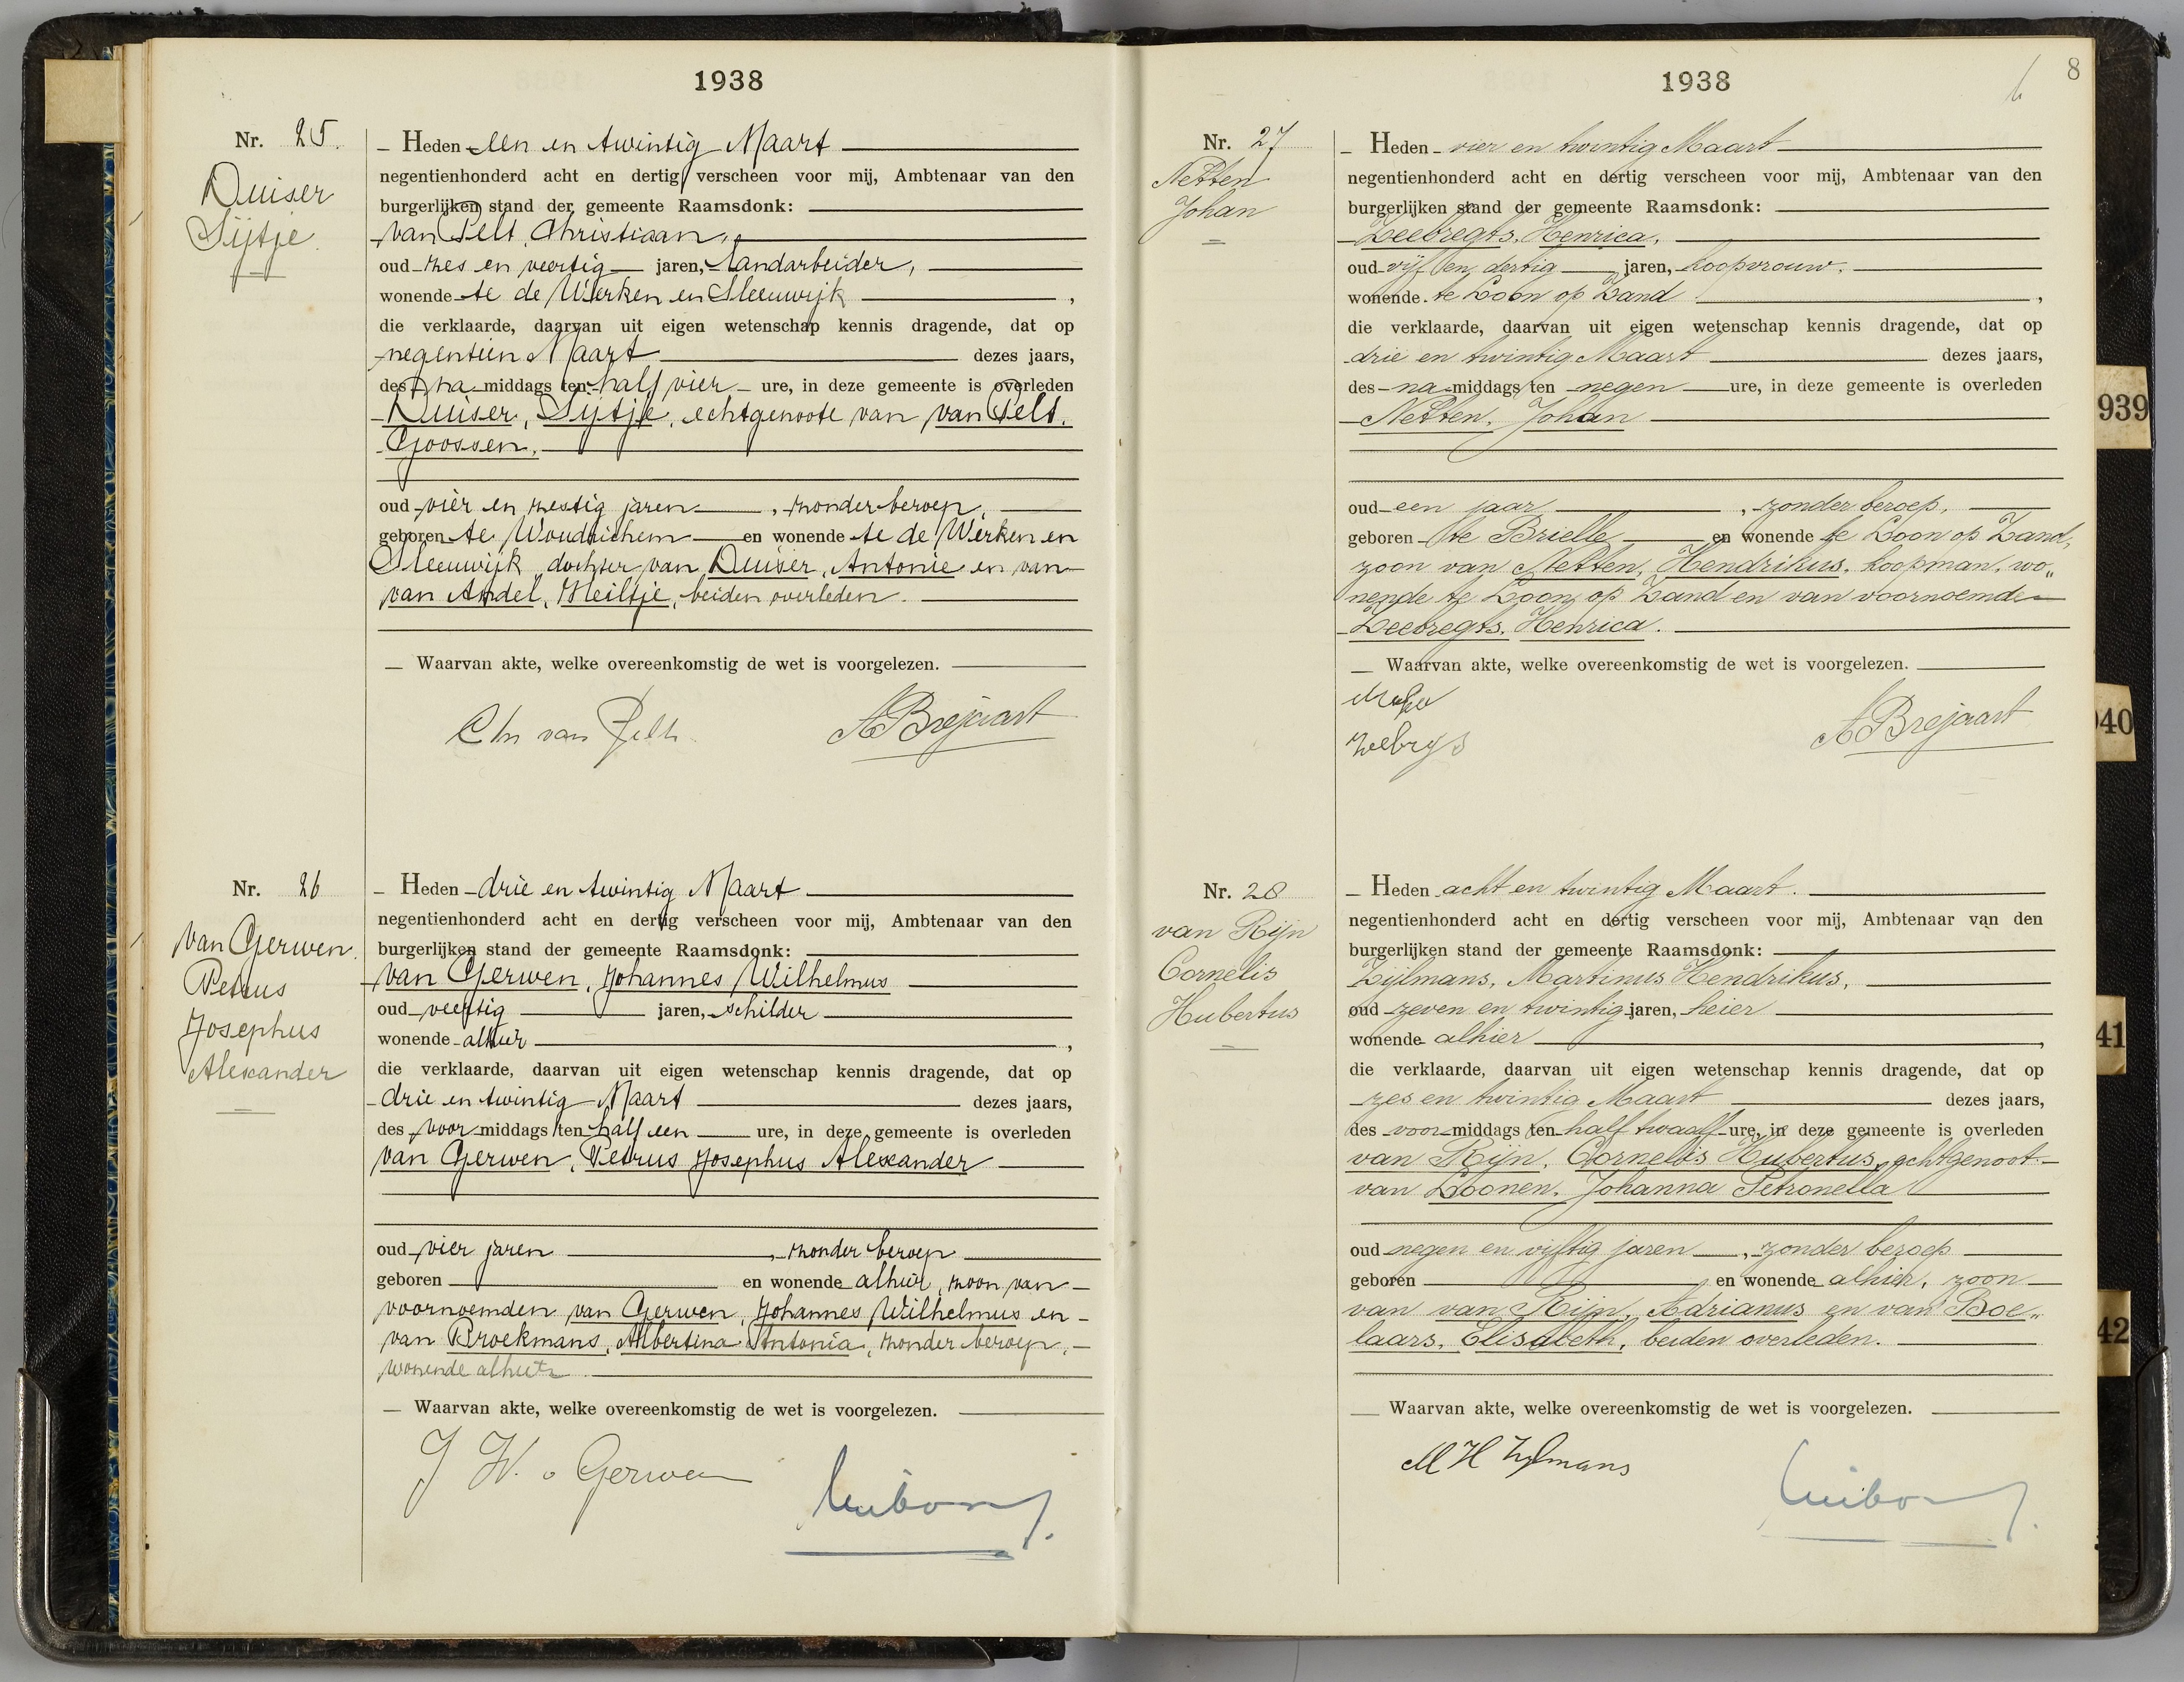 1938
Nr. 25.
Duiser
Sijtje
— Heden een en twintig Maart
negentienhonderd acht en dertig verscheen voor mij, Ambtenaar van den
burgerlijken stand der gemeente Raamsdonk:
van Pelt, Christiaan,
oud zes en veertig jaren, landarbeider,
wonende te de Werken en Sleeuwijk ,
die verklaarde, daarvan uit eigen wetenschap kennis dragende, dat op
negentien Maart dezes jaars,
des na middags ten half vier ure, in deze gemeente is overleden
Duiser, Sijtje, echtgenoote van van Pelt,
Goossen,
oud vier en zestig jaren , zonder beroep,
geboren te Woudrichem en wonende te de Werken en
Sleeuwijk dochter van Duiser, Antonie en van
van Andel, Heiltje, beiden overleden.
— Waarvan akte, welke overeenkomstig de wet is voorgelezen.
Chr van Pelt.
A Brejaart
Nr. 26
van Gerwen
Petrus
Josephus
Alexander
— Heden drie en twintig Maart
negentienhonderd acht en dertig verscheen voor mij, Ambtenaar van den
burgerlijken stand der gemeente Raamsdonk:
van Gerwen, Johannes Wilhelmus
oud veertig jaren, schilder
wonende alhier ,
die verklaarde, daarvan uit eigen wetenschap kennis dragende, dat op
drie en twintig Maart dezes jaars,
des voor middags ten half een ure, in deze gemeente is overleden
van Gerwen, Petrus Josephus Alexander
oud vier jaren , zonder beroep
geboren en wonende alhier, zoon van
voornoemden van Gerwen, Johannes Wilhelmus en
van Broekmans, Albertina Antonia, zonder beroep,
wonende alhier.
— Waarvan akte, welke overeenkomstig de wet is voorgelezen.
J W. v Gerwen
1938
8
Nr. 27
Netten
Johan
— Heden vier en twintig Maart
negentienhonderd acht en dertig verscheen voor mij, Ambtenaar van den
burgerlijken stand der gemeente Raamsdonk:
Zeebregts, Henrica,
oud vijf en dertig jaren, koopvrouw,
wonende te Loon op Zand ,
die verklaarde, daarvan uit eigen wetenschap kennis dragende, dat op
drie en twintig Maart dezes jaars,
des na middags ten negen ure, in deze gemeente is overleden
Netten, Johan
oud een jaar , zonder beroep,
geboren te Brielle en wonende te Loon op Zand,
zoon van Netten, Hendrikus, koopman, wo„
nende te Loon op Zand en van voornoemde
Zeebregts, Henrica.
— Waarvan akte, welke overeenkomstig de wet is voorgelezen.
A Brejaart
Nr. 28
van Rijn
Cornelis
Hubertus
— Heden acht en twintig Maart.
negentienhonderd acht en dertig verscheen voor mij, Ambtenaar van den
burgerlijken stand der gemeente Raamsdonk:
Zijlmans, Martinus Hendrikus,
oud zeven en twintig jaren, heier
wonende alhier ,
die verklaarde, daarvan uit eigen wetenschap kennis dragende, dat op
zes en twintig Maart dezes jaars,
des voor middags ten half twaalf ure, in deze gemeente is overleden
van Rijn, Cornelis Hubertus, echtgenoot
van Loonen, Johanna Petronella
oud negen en vijftig jaren , zonder beroep
geboren en wonende alhier, zoon
van van Rijn, Adrianus en van Boe„
laars, Elisabeth, beiden overleden.
— Waarvan akte, welke overeenkomstig de wet is voorgelezen.
M H Zylmans
939
40
41
42